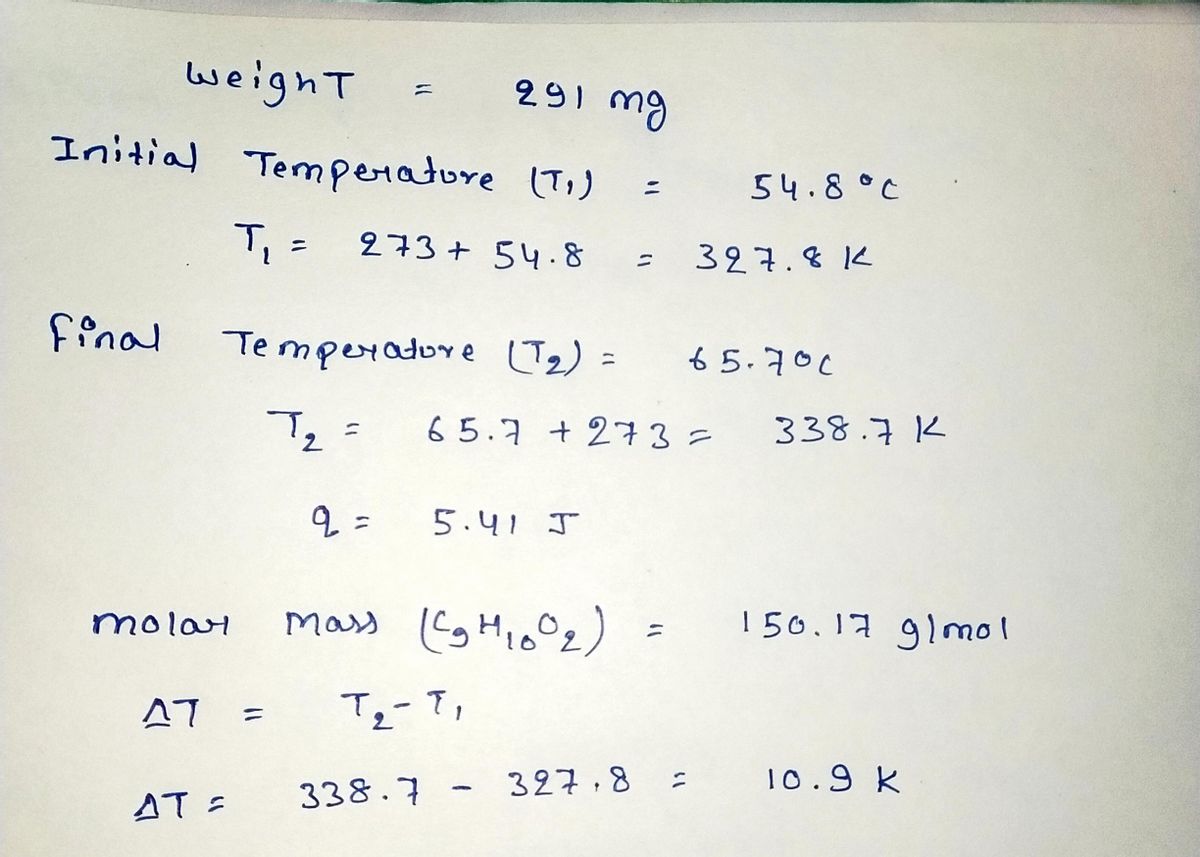 weighT = 291 mg
Initial Temperature (T₁) = 54.8 °C
T₁ = 273 + 54.8 = 327.8 K
final Temperature (T₂) = 65.7 °C
T₂ = 65.7 + 273 = 338.7 K
q = 5.41 J
molar mass (C₉H₁₀O₂) = 150.17 g/mol
ΔT = T₂ - T₁
ΔT = 338.7 - 327.8 = 10.9 K